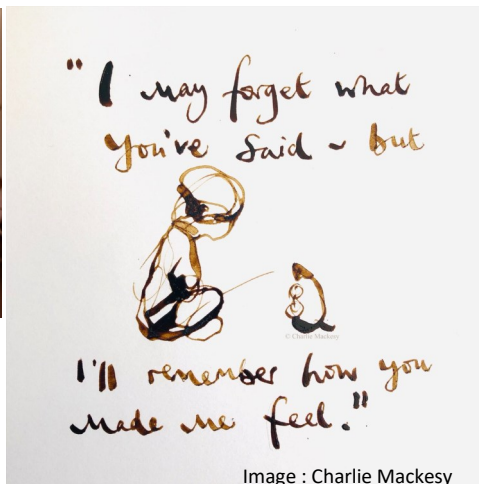 "I may forget what
you've said ~ but
© Charlie Mackesy
I'll remember how you
made me feel."
Image : Charlie Mackesy